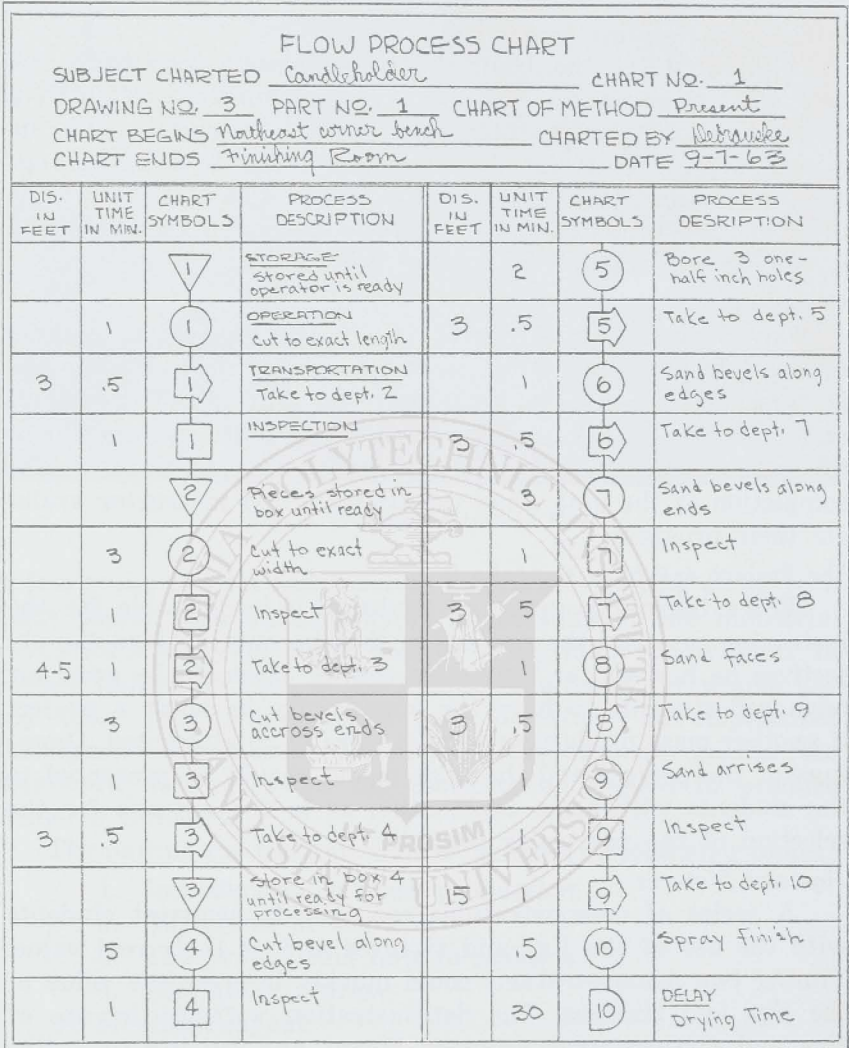 FLOW PROCESS CHART
SUBJECT CHARTED Candleholder CHART NO. 1
DRAWING NO. 3 PART NO. 1 CHART OF METHOD Present
CHART BEGINS Northeast corner bench CHARTED BY
CHART ENDS Finishing Room DATE 9-7-63
DIS. IN FEET
UNIT TIME IN MIN.
CHART SYMBOLS
PROCESS DESCRIPTION
1 STORAGE
stored until
operator is ready
1 1 OPERATION
cut to exact length
3 .5 1 TRANSPORTATION
Take to dept. 2
1 1 INSPECTION
2 Pieces stored in
box until ready
3 2 Cut to exact
width
1 2 Inspect
4-5 1 2 Take to dept. 3
3 3 Cut bevels
accross ends
1 3 Inspect
3 .5 3 Take to dept. 4
3 store in box 4
until ready for
processing
5 4 Cut bevel along
edges
1 4 Inspect
DIS. IN FEET
UNIT TIME IN MIN.
CHART SYMBOLS
PROCESS DESRIPTION
2 5 Bore 3 one-
half inch holes
3 .5 5 Take to dept. 5
1 6 Sand bevels along
edges
3 .5 6 Take to dept. 7
3 7 Sand bevels along
ends
1 7 Inspect
3 5 7 Take to dept. 8
1 8 Sand faces
3 .5 8 Take to dept. 9
1 9 Sand arrises
1 9 Inspect
15 1 9 Take to dept. 10
.5 10 Spray finish
30 10 DELAY
Drying Time
VIRGINIA POLYTECHNIC INSTITUTE
AND STATE UNIVERSITY
UT PROSIM